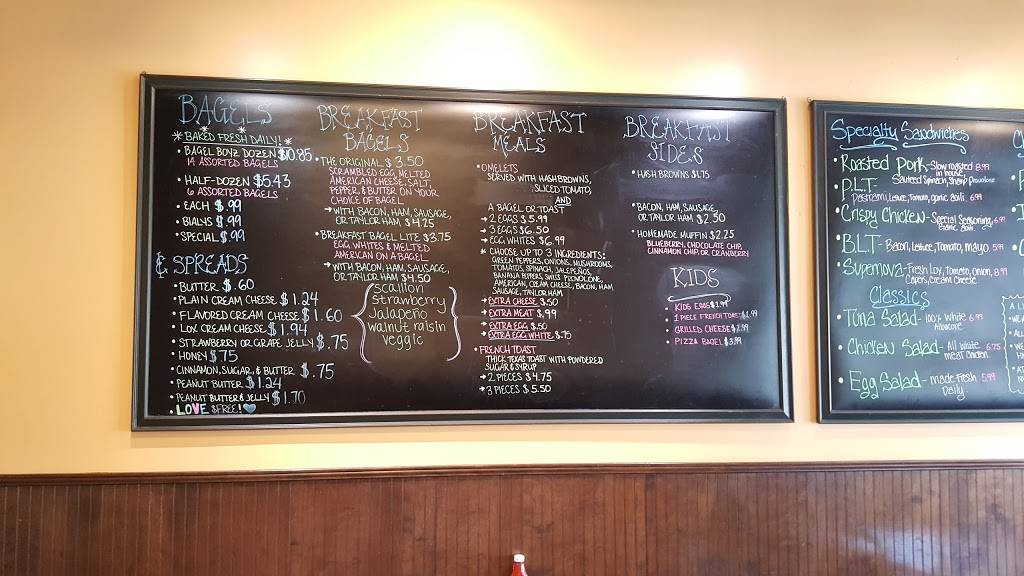 BAGELS
*BAKED FRESH DAILY!*
• BAGEL BOYZ DOZEN $10.85
14 ASSORTED BAGELS
• HALF-DOZEN $5.43
6 ASSORTED BAGELS
• EACH $.99
• BIALYS $.99
• SPECIAL $.99
& SPREADS
• BUTTER $.60
• PLAIN CREAM CHEESE $1.24
• FLAVORED CREAM CHEESE $1.60
• LOX CREAM CHEESE $1.94
• STRAWBERRY OR GRAPE JELLY $.75
• HONEY $.75
• CINNAMON, SUGAR, & BUTTER $.75
• PEANUT BUTTER $1.24
• PEANUT BUTTER & JELLY $1.70
• LOVE $FREE!
BREAKFAST
BAGELS
• THE ORIGINAL $3.50
SCRAMBLED EGG, MELTED
AMERICAN CHEESE, SALT,
PEPPER, & BUTTER ON YOUR
CHOICE OF BAGEL
→ WITH BACON, HAM, SAUSAGE,
OR TAYLOR HAM $4.25
• BREAKFAST BAGEL LITE $3.75
EGG WHITES & MELTED
AMERICAN ON A BAGEL
→ WITH BACON, HAM, SAUSAGE,
OR TAYLOR HAM $4.50
scallion
strawberry
Jalapeño
walnut raisin
veggie
BREAKFAST
MEALS
• OMELETS
SERVED WITH HASH BROWNS,
SLICED TOMATO,
AND
A BAGEL OR TOAST
→ 2 EGGS $5.99
→ 3 EGGS $6.50
→ EGG WHITES $6.99
* CHOOSE UP TO 3 INGREDIENTS:
GREEN PEPPERS, ONIONS, MUSHROOMS,
TOMATOS, SPINACH, JALEPEÑOS,
BANANA PEPPERS, SWISS, PROVOLONE,
AMERICAN, CREAM CHEESE, BACON, HAM,
SAUSAGE, TAYLOR HAM
→ EXTRA CHEESE $.50
→ EXTRA MEAT $.99
→ EXTRA EGG $.50
→ EXTRA EGG WHITE $.75
• FRENCH TOAST
THICK TEXAS TOAST WITH POWDERED
SUGAR & SYRUP
→ 2 PIECES $4.75
→ 3 PIECES $5.50
BREAKFAST
SIDES
• HASH BROWNS $1.75
• BACON, HAM, SAUSAGE,
OR TAYLOR HAM $2.50
• HOMEMADE MUFFIN $2.25
BLUEBERRY, CHOCOLATE CHIP,
CINNAMON CHIP, OR CRANBERRY
KIDS
• KIDS EGGS $2.99
• 1 PIECE FRENCH TOAST $1.99
• GRILLED CHEESE $2.99
• PIZZA BAGEL $3.99
Specialty Sandwiches
• Roasted Pork - Slow roasted 8.99
in house
Sauteed Spinach, Sharp Provolone
• P.L.T.
Pastrami, Lettuce, Tomato, Garlic Aioli 6.99
• Crispy Chicken - Special Seasoning, 6.99
• BLT - Bacon, Lettuce, Tomato, mayo 5.99
• Supernova - Fresh lox, Tomato, Onion, 8.99
Capers, Cream Cheese
Classics
• Tuna Salad - 100% white 6.99
Albacore
• Chicken Salad - All white 6.75
meat chicken
• Egg Salad - made Fresh 5.99
Daily